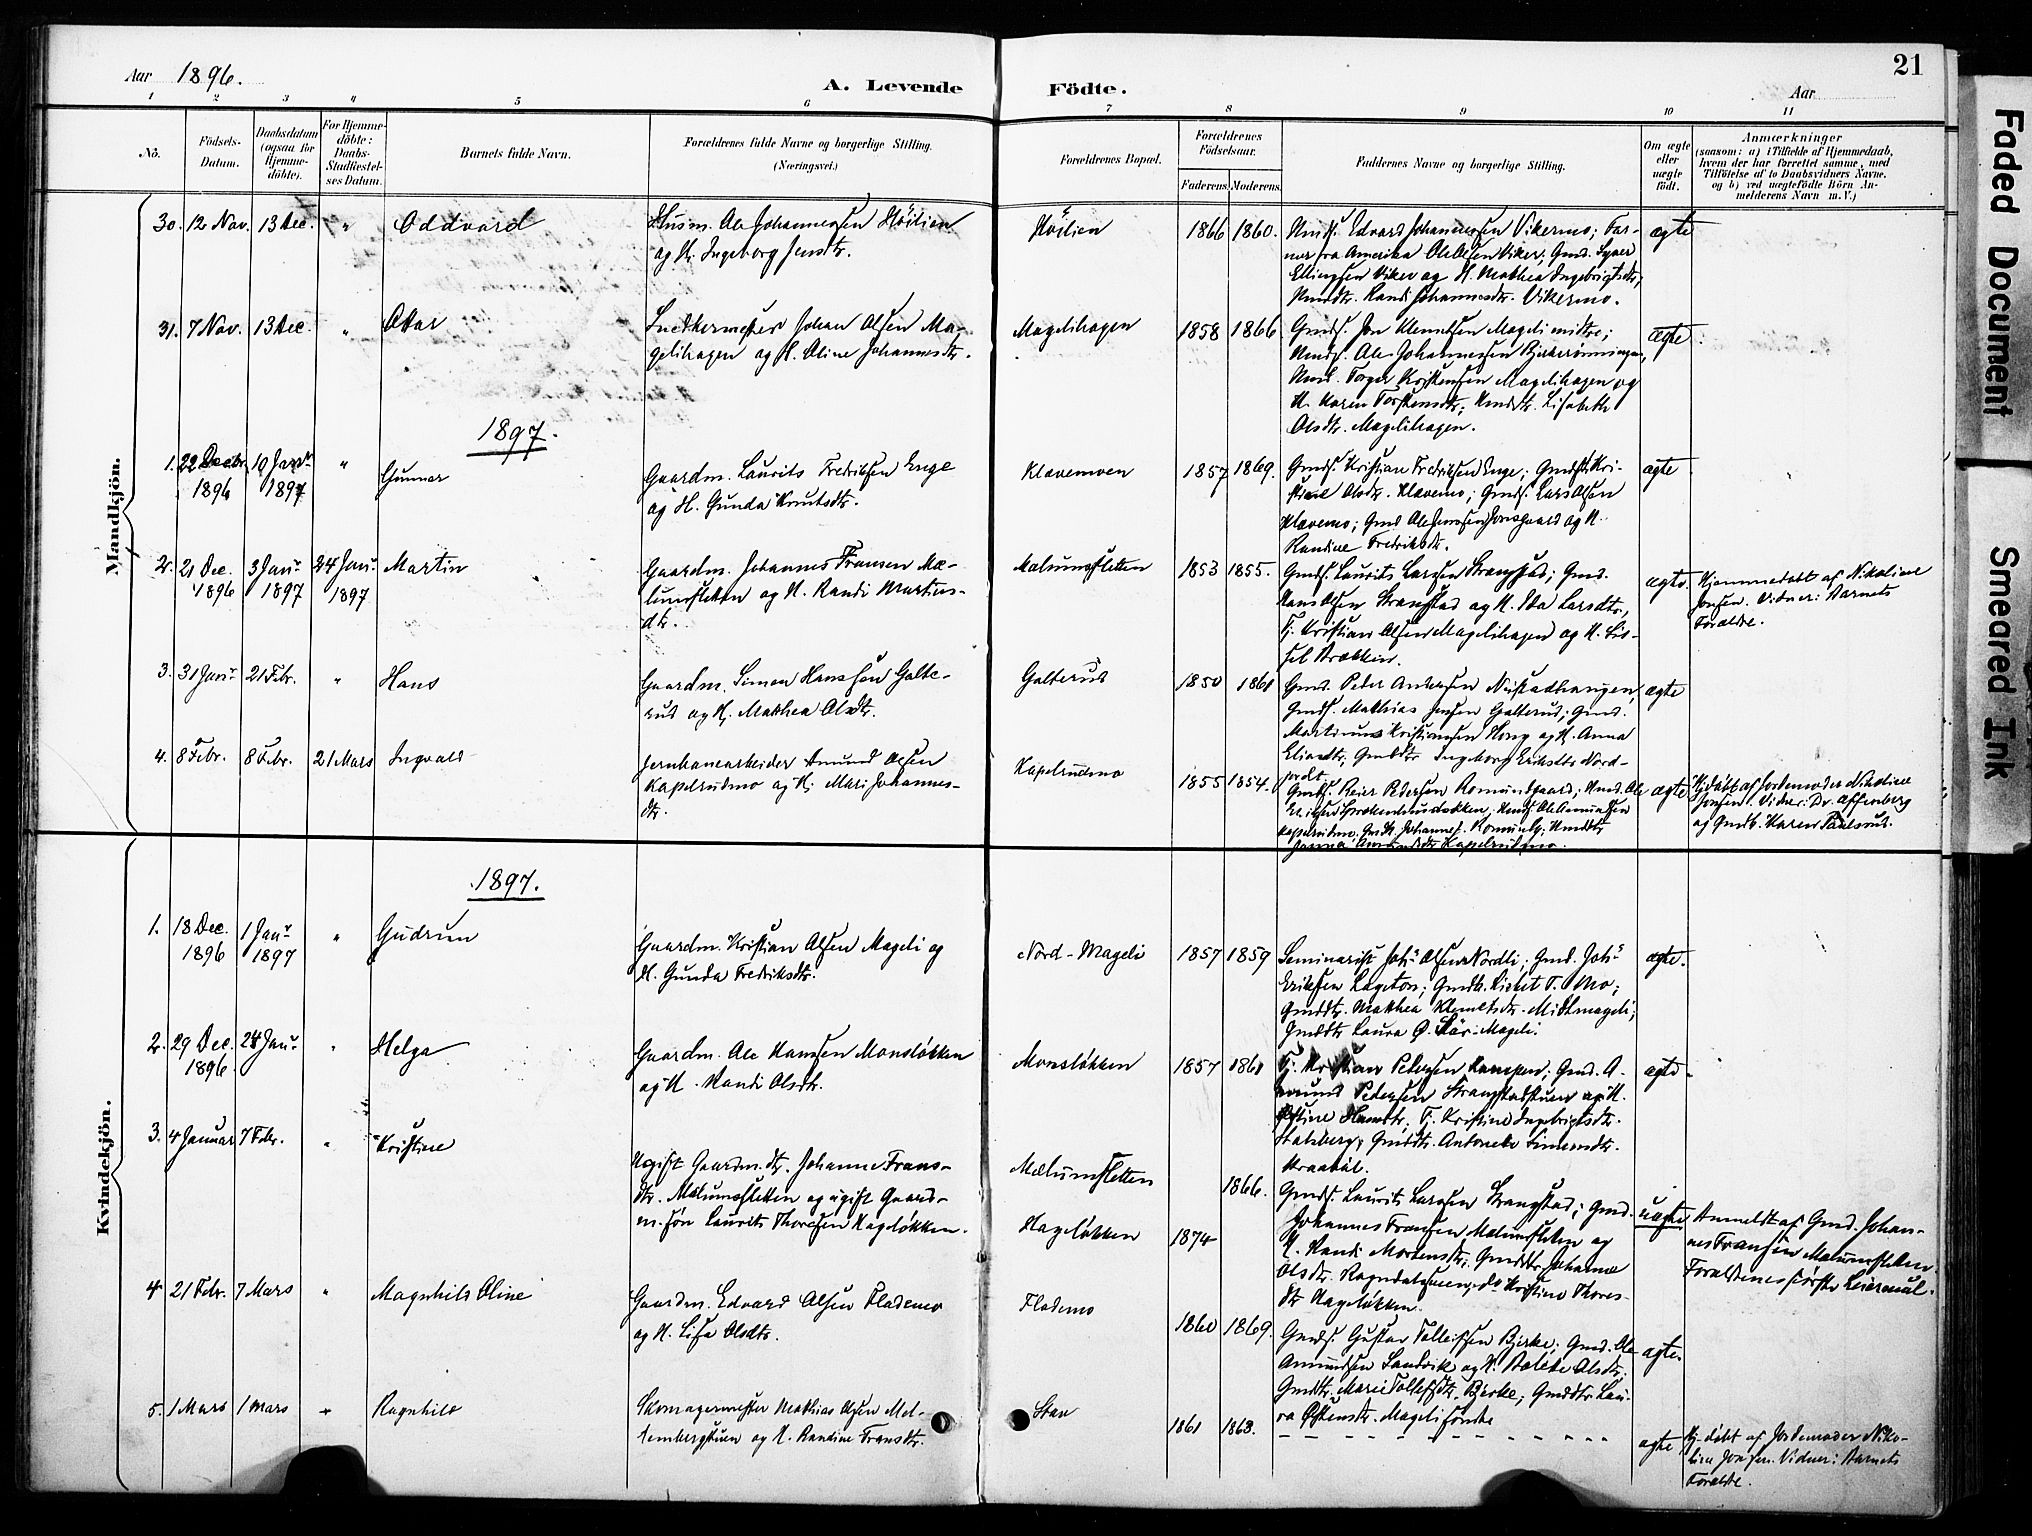 Aar 1896.
A. Levende Födte.
Aar
21
1 2 3 4 5 6 7 8 9 10 11
No.
Födsels-
Datum.
Daabsdatum
(ogsaa for
Hjemme-
döbte).
For Hjemme-
döbte:
Daabs-
Stadfæstel-
ses Datum.
Barnets fulde Navn.
Forældrenes fulde Navne og borgerlige Stilling.
(Næringsvei.)
Forældrenes Bopæl.
Forældrenes
Födselsaar.
Faderens. Moderens.
Faddernes Navne og borgerlige Stilling.
Om ægte
eller
uægte
födt.
Anmærkninger
(saasom: a) i Tilfælde af Hjemmedaab,
hvem der har forrettet samme, med
Tilföielse af to Daabsvidners Navne.
og b) ved uægtefödte Börn An-
melderens Navn m. V.)
Mandkjön.
30. 12 Nov. 13 Dec. " Oddvard
Husm. Ole Johannessen Höilien
og H. Ingeborg Jensdtr.
Höilien
1866 1860.
Umdf. Edvard Johannessen Vikermo; Far-
mer fra Amerika Ole Olsen Viker; Gmd. Syver
Ellingsen Viker og H. Mathea Ingebrigtsdtr;
Umddtr. Randi Johannesdtr. Vikermo.
ægte
31. 7 Nov. 13 Dec. " Ottar
Snedkermester Johan Olsen Ma-
gelihagen og H. Oline Johannesdtr.
Magelihagen
1858 1866
Gmdf. Jon Klemetsen Magelimidtre;
Umdf. Ole Johannessen Bjerkerønningen,
Umd. Torger Kristensen Magelihagen og
H. Karen Torstensdtr; Umddtr. Lisabeth
Olsdtr. Magelihagen.
ægte
1897.
1. 22 Decbr. 10 Janr "
1896 1897
Gunnar
Gaardm. Laurits Fredriksen Enge
og H. Gunda Knutsdtr.
Klævemoen
1857 1869.
Gmdf. Kristian Fredriksen Enge; Gmddtr. Kri-
stine Olsdtr. Klævemo; Gmdf. Lars Olsen
Klævemo; Gmd. Ole Jensen Jonsgaard og H.
Randine Fredriksdtr.
ægte
2. 21 Dec. 3 Janr 24 Janr Martin
1896 1897 1897
Gaardm. Johannes Fransen Mæ-
lumsletten og H. Randi Martins-
dtr.
Mælumsletten
1853 1855.
Gmdf. Laurits Larssen Strangstad; Gmd.
Hans Olsen Strangstad og H. Ida Larsdtr,
Tj. Kristian Olsen Magelihagen og H. Sis-
sel Brækken.
ægte.
Hjemmedøbt af Nikoline
Jonsen. Vidner: Barnets
Forældre.
3. 31 Janr 21 Febr. " Hans
Gaardm. Simen Hanssøn Galte-
rud og H. Mathea Olsdtr.
Galterud
1850 1861
Gmd. Peder Andersen Neistadhaugen,
Gmdf. Mathias Jensen Galterud; Gmd.
Martinus Kristiansen Houg og H. Anna
Eliasdtr, Gmddtr Ingeborg Eriksdtr Nord-
jordet
ægte
4. 8 Febr. 8 Febr. 21 Mars Ingvald
Jernbanearbeider Amund Olsen
Kapelrudmo og H. Mari Johannes-
dtr.
Kapelrudmo
1855 1854.
Gmdf. Reier Pedersen Romundgaard; Umd. Ole
Umdf. Ole Amundsen
Kapelrudmo
Amundsdtr. Kapelrudmo.
ægte
Hj.døbt af Jordemoder Nikoline
Jonsen. Vidner: Dr. Affenberg
og Gmdk. Karen Paulsrud.
Kvindekjön.
1897.
1. 18 Dec. 1 Janr " Gudrun
1896 1897
Gaardm. Kristian Olsen Mageli og
H. Gunda Fredriksdtr.
Nord-Mageli
1857 1859
Seminarist Johs Olsen Nordli; Gmd. Johs
Eriksen Lageton; Gmdk. Lisbet T. Mo;
Gmddtr. Mathea Klemetsdtr. Midtmageli;
Gmddtr Laura Ø. Mageli.
ægte.
2. 29 Dec. 24 Janr " Helga
1896
Gaardm. Ole Hansen Monsløkken
og H. Randi Olsdtr.
Monsløkken
1857 1861
Tj. Kristian Pedersen; Gmd. A-
mund Pedersen Strangstadstuen og H.
Kristine Hansdtr; Tj. Kristine Ingebrigtsdtr.
Stalsberg; Gmddtr. Antonette Simensdtr.
Kraabøl.
ægte.
3. 4 Januar 7 Febr. " Kristine
Ugift Gaardm.dtr. Johanne Frans-
dtr. Mælumsletten og ugift Gaard-
m.søn Laurits Thoresen Hageløkken.
Mælumsletten
Hageløkken
1874 1866.
Gmdf. Laurits Larssen Strangstad; Gmd.
Johannes Fransen Mælumsletten og
H. Randi Mortensdtr; Gmddtr. Johanne
Olsdtr. Rogndalstuen; do Kristine Thores-
dtr Hageløkken.
uægte
Anmeldt af Gmd. Johan-
nes Fransen Mælumsletten.
Forældrenes første Leiermaal.
4. 21 Febr. 7 Mars " Magnhild Oline
Gaardm. Edvard Olsen Flademo
og H. Lisa Olsdtr.
Flademo
1860 1869.
Gmdf. Gustav Tollefsen Bjerke; Gmd. Ole
Amundsen Sandvik og H. Olsdtr;
Gmddtr. Marie Tollefsdtr. Bjerke; Gmddtr. Lau-
ra Østensdtr. Mageli søndre
ægte.
5. 1 Mars 1 Mars " Ragnhild
Skomagermester Mathias Olsen Mel-
lembergstuen og H. Randine Fransdtr.
Stav
1861 1863.
ægte
Hj.døbt af Jordemoder Niko-
line Jonsen. Vidner: Barnets
Forældre.
Faded Document
Smeared Ink